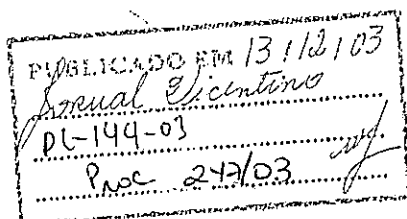 PUBLICADO EM 13/12/03
Jornal Vicentino
DL-144-03
Proc 247/03